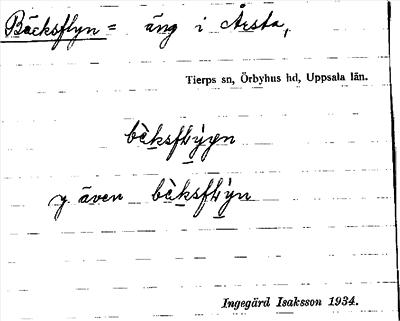 Bäcksflyn = äng i Årsta,
Tierps sn, Örbyhus hd, Uppsala län.
bèksflýyn
y även bèksflýn
Ingegärd Isaksson 1934.